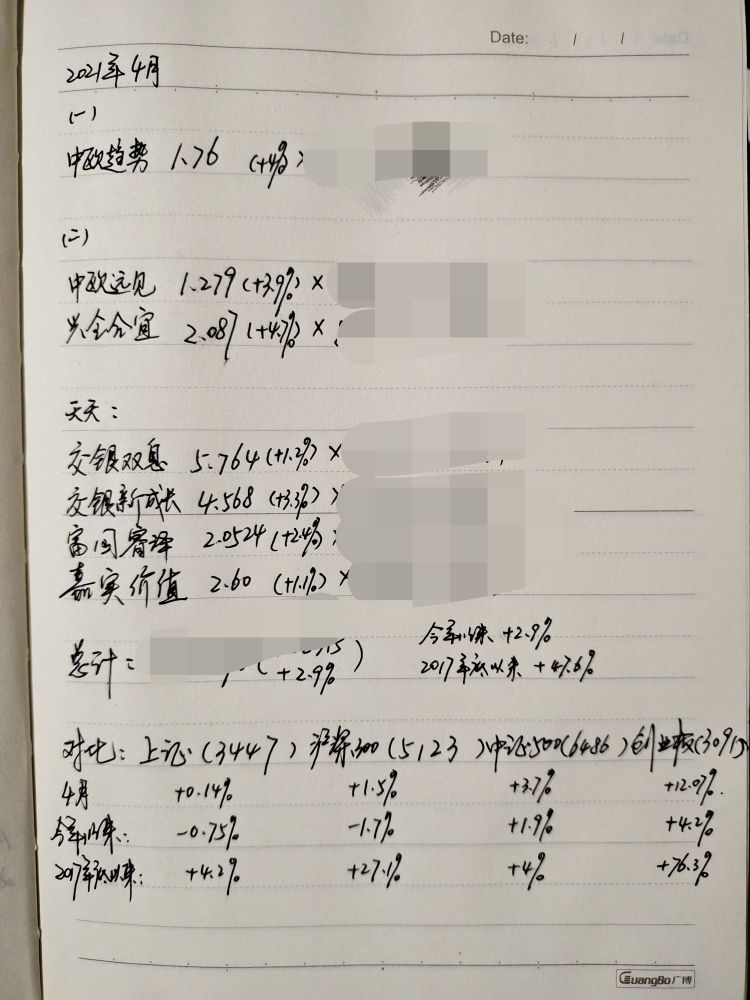 Date: / /
2021年4月
(一)
中欧趋势 1.76 (+4%)
(二)
中欧远见 1.279 (+3.9%) ×
兴全合宜 2.087 (+4.7%) ×
天天:
交银双息 5.764 (+1.2%) ×
交银新成长 4.568 (+3.3%)
富国睿泽 2.0524 (+2.4%)
嘉实价值 2.60 (+1.1%) ×
今年以来 +2.9%
总计: ( +2.9% ) 2017年底以来 +47.6%
对比: 上证 (3447) 沪深300 (5123) 中证500 (6486) 创业板 (3091)
4月 +0.14% +1.5% +3.7% +12.07%.
今年以来: -0.75% -1.7% +1.9% +4.2%
2017年底以来: +4.2% +27.1% +4% +76.3%
GuangBo广博